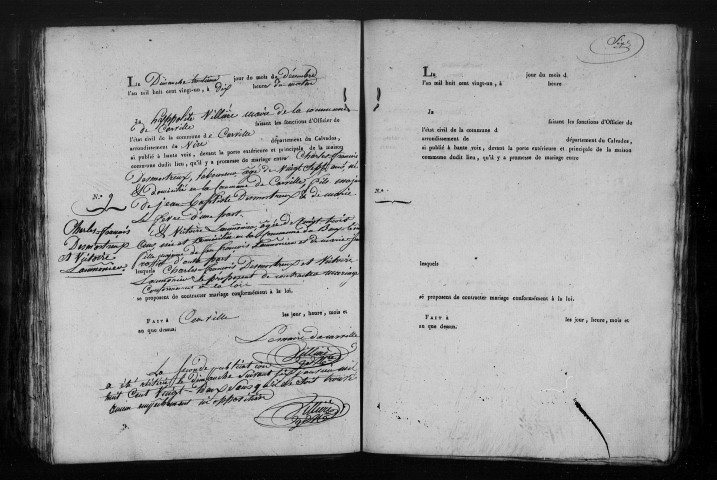 Le Dimanche trentieme jour du mois de décembre
l'an mil huit cent vingt-un, à dix heures du matin
Je hippolite Villère maire de la commune
de Carville faisant les fonctions d'Officier de
l'état civil de la commune d Carville
arrondissement de Vire département du Calvados,
ai publié à haute voix, devant la porte extérieure et principale de la maison
commune dudit lieu, qu'il y a promesse de mariage entre Charles françois
Desmortreux, laboureur agé de Vingt Sept ans, né
et Domicilié en la commune de Carville, fils majeur
de jean Baptiste Desmortreux & de marie
d'une part
N.º 9
Charles françois
Desmortreux
et Victoire
Laumônier
Et Victoire Laumônier, agée de Vingt trois
ans née et Domiciliée en la commune du
fille majeure de feu françois Laumônier et de marie
d'autre part
lesquels Charles françois Desmortreux et Victoire
Laumonier se proposent de contracter mariage
Conformément à la loi
se proposent de contracter mariage conformément à la loi.
Fait à Carville les jour, heure, mois et
an que dessus.
Le maire de Carville
Villère
La Seconde publication
a été réitérée le dimanche suivant Six janvier mil
huit Cent Vingt-deux Sans qu'il se soit trouvé
aucun empêchement ni opposition
Villère
Le jour du mois d
l'an mil huit cent vingt-un, à heure
Ja
faisant les fonctions d'Officier de
l'état civil de la commune d
arrondissement de département du Calvados,
ai publié à haute voix, devant la porte extérieure et principale de la maison
commune dudit lieu, qu'il y a promesse de mariage entre
N.º
lesquels
se proposent de contracter mariage conformément à la loi.
Fait à les jour, heure, mois et
an que dessus.